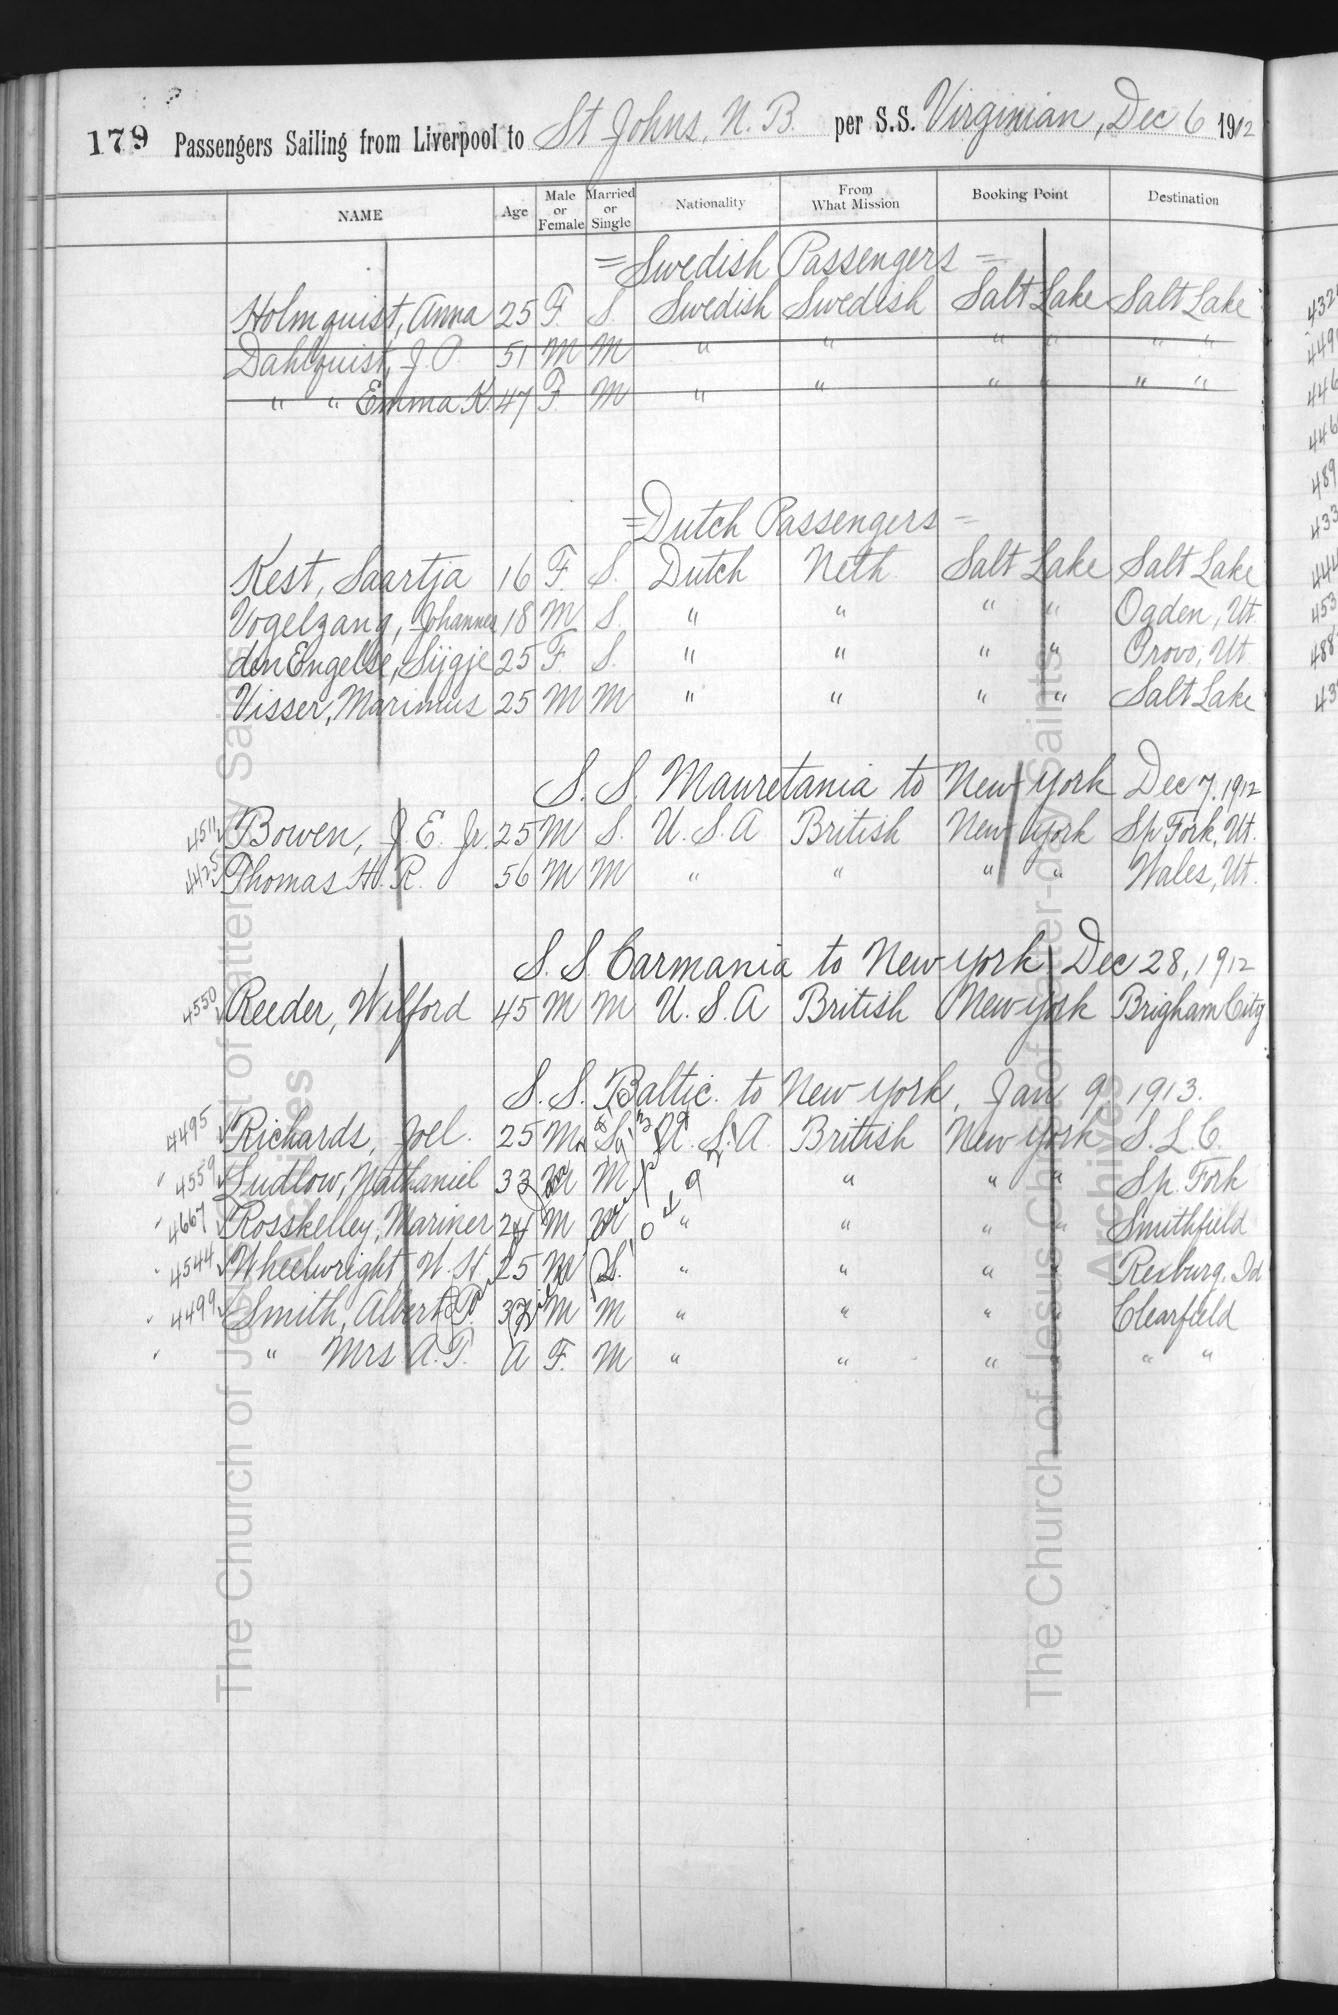 179 Passengers Sailing from Liverpool to St Johns, N. B. per S.S. Virginian, Dec 6 1912
NAME Age Male or Female Married or Single Nationality From What Mission Booking Point Destination
= Swedish Passengers =
Holmquist, Anna 25 F. S. Swedish Swedish Salt Lake Salt Lake
Dahlquist, J. P. 51 M M " " " " " "
" " Emma K. 47 F. M " " " " " "
= Dutch Passengers =
Kest, Saartja 16 F S. Dutch Neth Salt Lake Salt Lake
Vogelzang, Johannes 18 M S. " " " " Ogden, Ut.
den Engelse, Sijgje 25 F. S. " " " " Provo, Ut
Visser, Marinus 25 M M " " " " Salt Lake
S. S. Mauretania to New York Dec 7. 1912
4511 Bowen, J. E. Jr. 25 M S. U. S. A British New York Sp. Fork, Ut.
4425 Thomas H. R. 56 M M " " " " Wales, Ut.
S. S. Carmania to New York Dec 28, 1912
4550 Reeder, Wilford 45 M M U. S. A British New York Brigham City
S. S. Baltic. to New York, Jan 9, 1913.
4495 Richards, Joel. 25 M S. U. S. A. British New York S. L. C.
" 4559 Ludlow, Nathaniel 33 M M " " " Sp. Fork
" 4667 Rosskelley, Mariner 24 M M " " " " Smithfield
" 4544 Wheelwright, W. H. 25 M S. " " " " Rexburg, Id
" 4499 Smith, Albert T. 37 M M " " " " Clearfield
" " Mrs A. T. A F. M " " " " " "
The Church of Jesus Christ of Latter-day Saints
Archives
The Church of Jesus Christ of Latter-day Saints
Archives